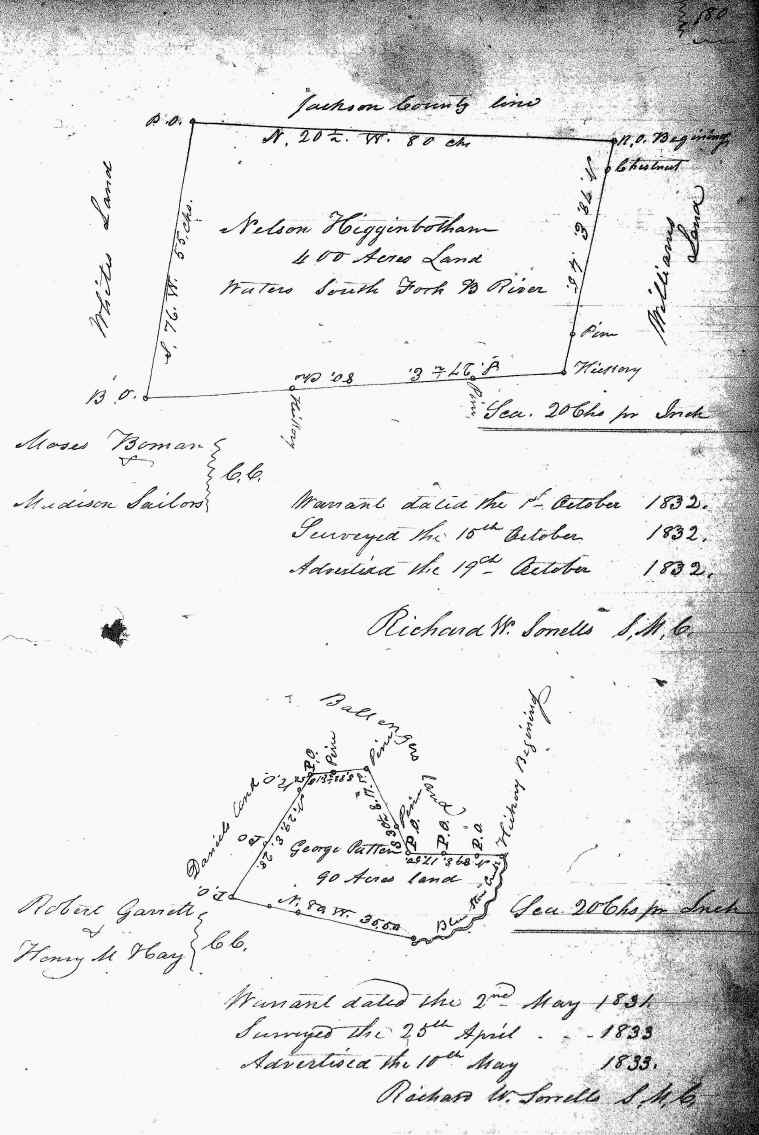 580
Jackson County line
B.O.
N. 20½ W. 80 chs
R.O. Begining
Chestnut
Whites Land
S. 76. W. 55 chs.
Nelson Higginbotham
400 Acres Land
Waters South Fork B River
N. 78 E. 45.
Williams Land
Pine
B.O.
80. chs
S. 27½ E.
Hickory
Hickory
Pine
Sca. 20 Chs pr Inch
Moses Boman
&
Madison Sailors
C.C.
Warrant dated the 1st October 1832.
Surveyed the 15th October 1832.
Advertised the 19th October 1832.
Richard W. Sorrells S.M.C.
Ballengers Land
P.O.
Pine
Pine
Hickory Begining
Daniels Land
P.O.
Pine
P.O.
P.O.
P.O.
George Patten
90 Acres land
P.O.
N. 80 W. 35.50
Blue Stone Creek
Sca. 20 Chs pr Inch
Robert Garrett
&
Henry M Hay
C.C.
Warrant dated the 2nd May 1831
Surveyed the 25th April - - - 1833
Advertised the 10th May 1833.
Richard W. Sorrells S.M.C.